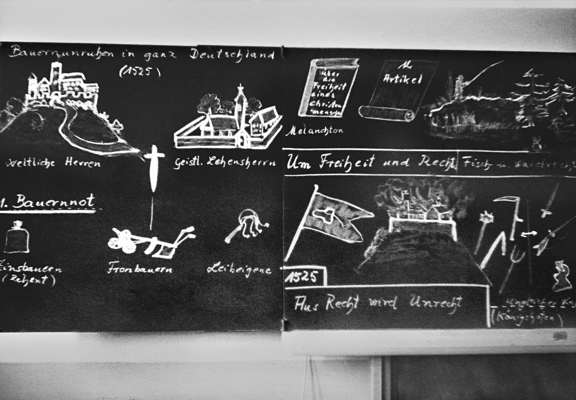 Bauernunruhen in ganz Deutschland
(1525)
weltliche Herren
Geistl. Lehensherrn
1. Bauernnot
Zinsbauern
(Zehent)
Fronbauern
Leibeigene
über
die
Freiheit
eines
Christen
menschen
Artikel
Melanchton
Um Freiheit und Recht
1525
Aus Recht wird Unrecht
(Königshofen)